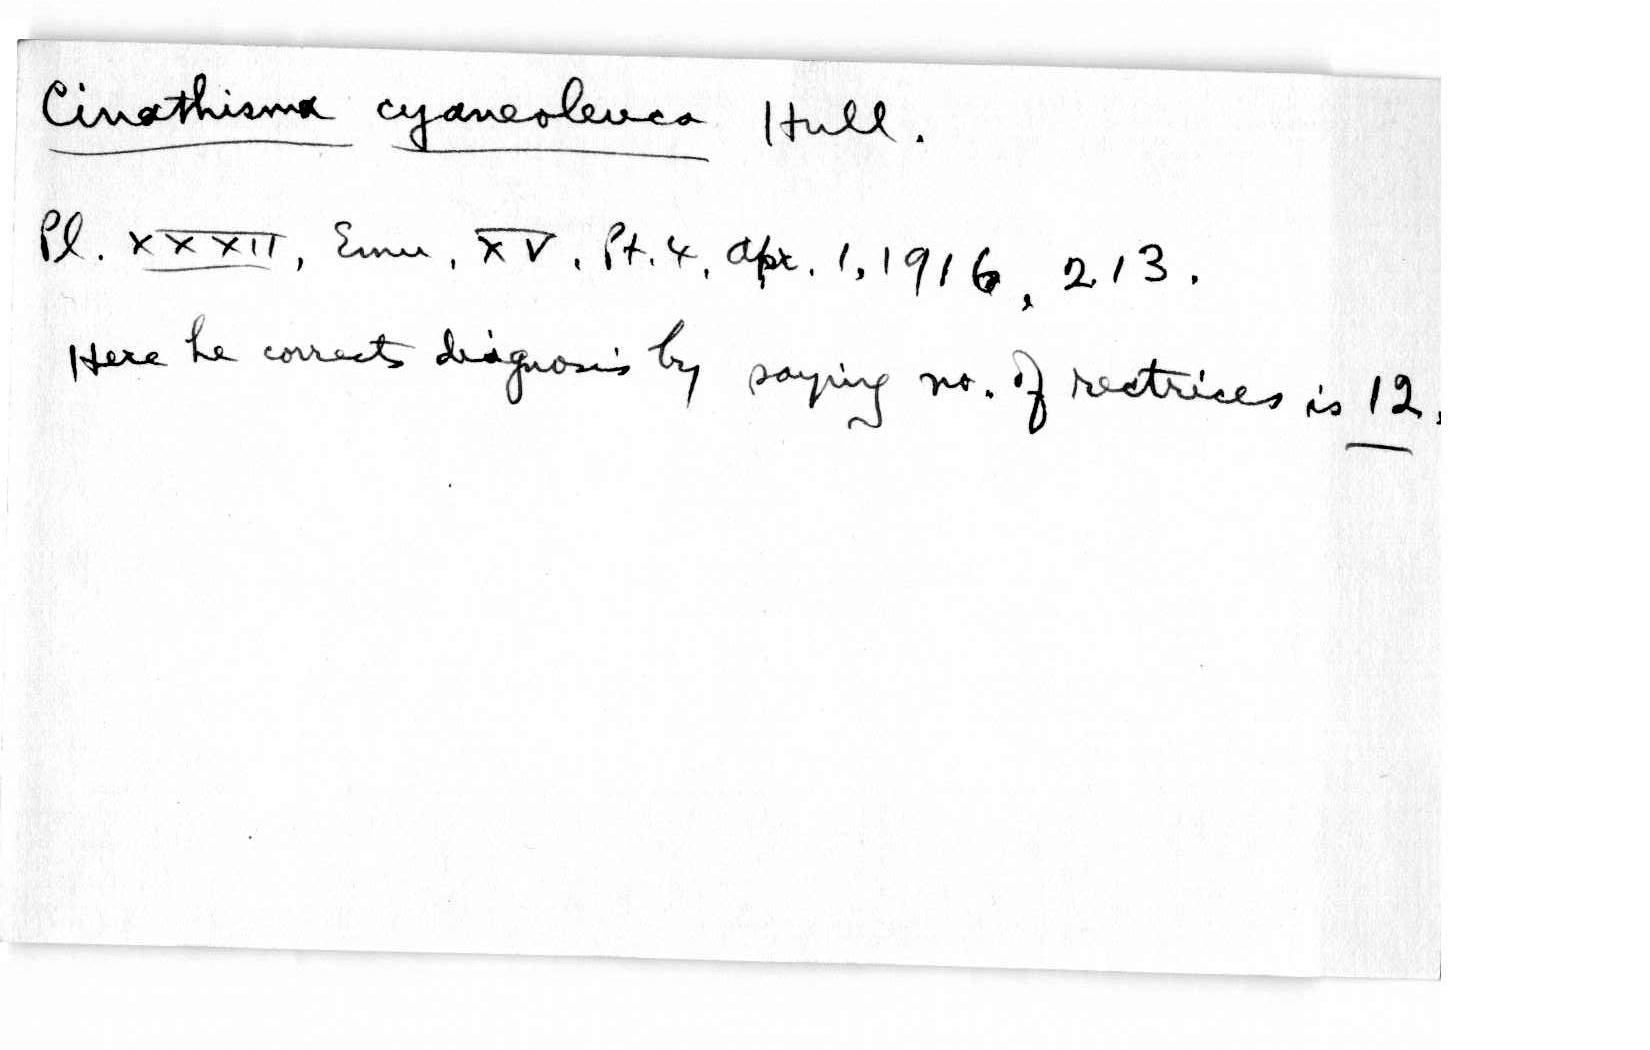 Cinathisma cyaneoleuca Hull.
Pl. XXXII, Emu, XV, Pt. 4, Apr. 1, 1916, 213.
Here he corrects diagnosis by saying no. of rectrices is 12.